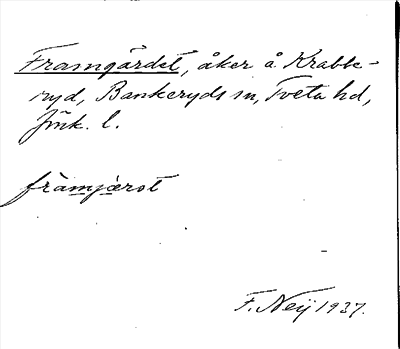 Framgärdet, åker å Krabbe-
ryd, Bankeryds sn, Tveta hd,
Jönk. l.
fràmjærət
F. Neij 1937.